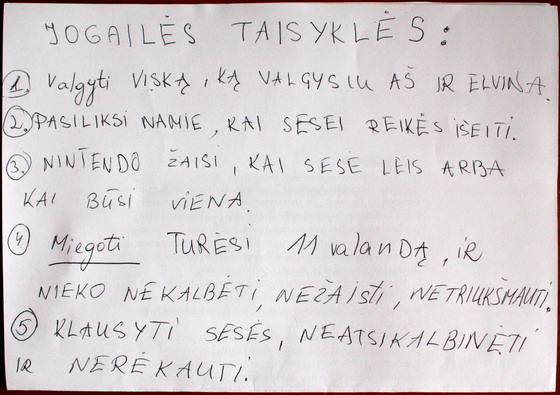 JOGAILĖS TAISYKLĖS:
1. Valgyti VISKĄ, KĄ VALGYSIU AŠ IR ELVINA.
2. PASILIKSI NAMIE, KAI SESEI REIKĖS IŠEITI.
3. NINTENDO ŽAISI, KAI SESĖ LEIS ARBA
KAI BŪSI VIENA.
4 Miegoti TURĖSI 11 valanDĄ, IR
NIEKO NEKALBĖTI, NEŽAISti, NETRIUKŠMAUTI.
5 KLAUSYTI SESĖS, NEATSIKALBINĖTI
IR NERĖKAUTI.